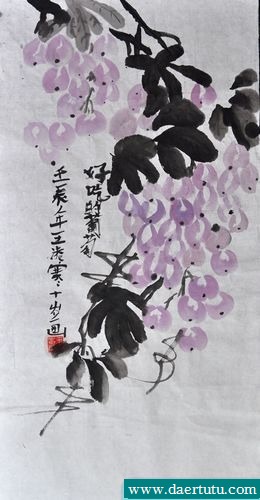 好吃的葡萄
壬辰年王尧霁十岁画
www.daertutu.com